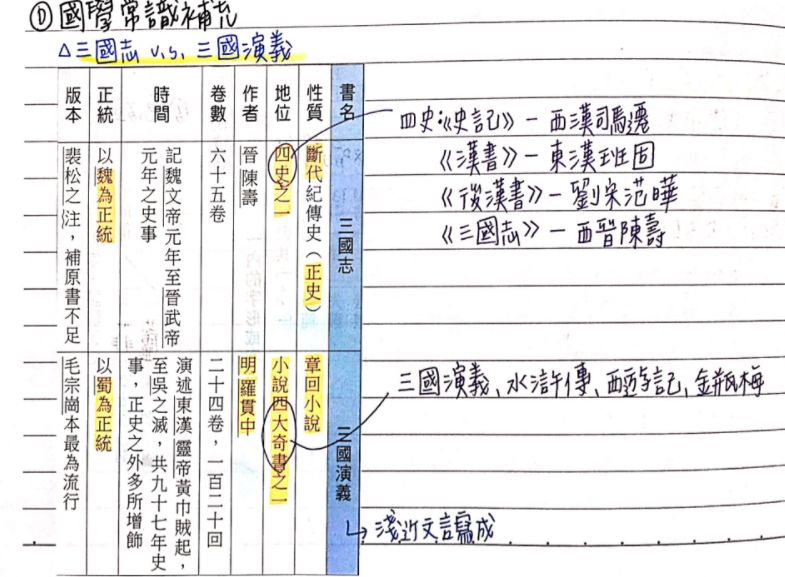 ① 國學常識補充
△三國志 v.s. 三國演義
書名
三國志
三國演義
性質
斷代紀傳史(正史)
章回小說
地位
四史之一
小說四大奇書之一
作者
晉 陳壽
明 羅貫中
卷數
六十五卷
二十四卷,一百二十回
時間
記魏文帝元年至晉武帝
元年之史事
演述東漢靈帝黃巾賊起,
至吳之滅,共九十七年史
事,正史之外多所增飾
正統
以魏為正統
以蜀為正統
版本
裴松之注,補原書不足
毛宗崗本最為流行
四史:《史記》—西漢司馬遷
《漢書》—東漢班固
《後漢書》—劉宋范曄
《三國志》—西晉陳壽
三國演義、水滸傳、西遊記、金瓶梅
↳淺近文言寫成